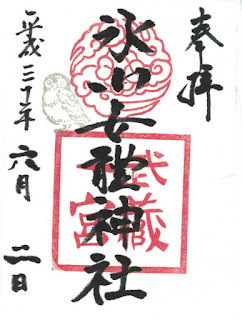 奉拝
氷川女體神社
武蔵
宮
平成三十年
六月
二日